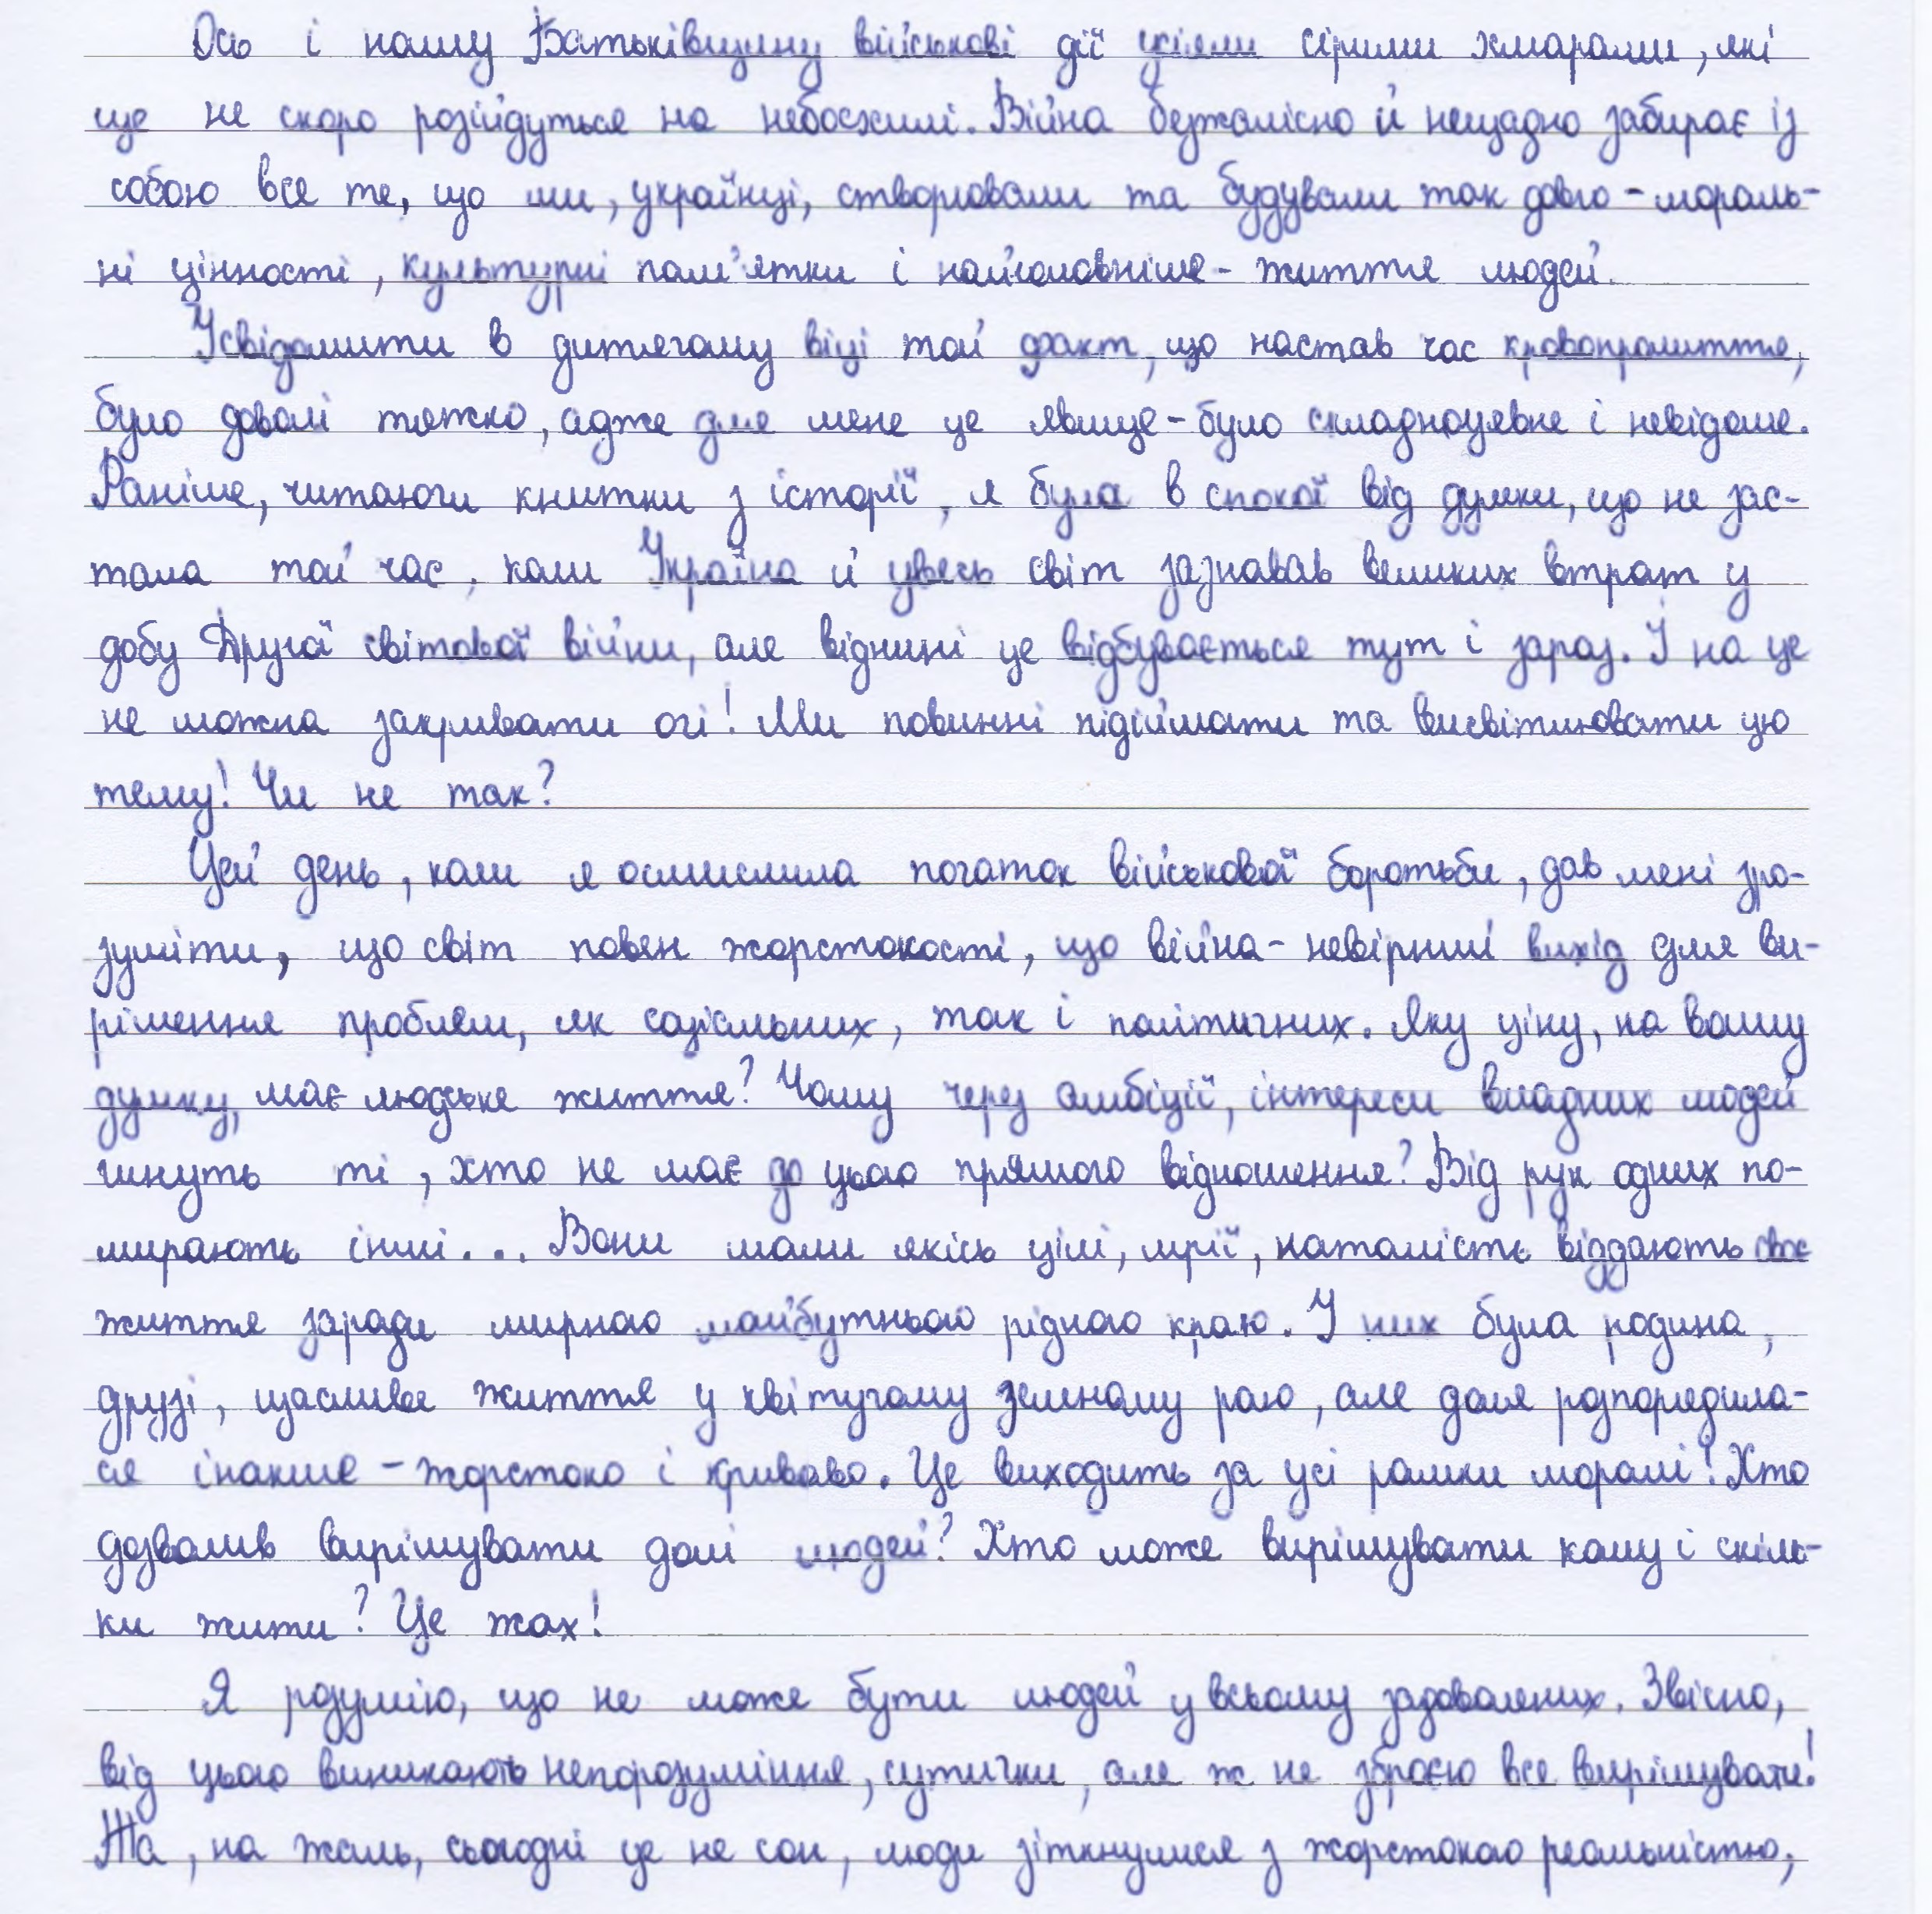 Ось і нашу Батьківщину військові дії укіяли сірими хмарами, які
ще не скоро розійдуться на небосхилі. Війна безжалісно й нещадно забирає із
собою все те, що ми, українці, створювали та будували так довго - мораль-
ні цінності, культурні пам'ятки і найголовніше - життя людей.
Усвідомити в дитячому віці той факт, що настав час кровопролиття,
було доволі тяжко, адже для мене це явище - було складноуявне і невідоме.
Раніше, читаючи книжки з історії, я була в спокої від думки, що не зас-
тала той час, коли Україна й увесь світ зазнавав великих втрат у
добу Другої світової війни, але віднині це відбувається тут і зараз. І на це
не можна закривати очі! Ми повинні підіймати та висвітлювати цю
тему! Чи не так?
Цей день, коли я осмислила початок військової боротьби, дав мені зро-
зуміти, що світ повен жорстокості, що війна - невірний вихід для ви-
рішення проблем, як соціальних, так і політичних. Яку ціну, на вашу
думку, має людське життя? Чому через амбіції, інтереси владних людей
гинуть ті, хто не має до цього прямого відношення? Від рук одних по-
мирають інші... Вони мали якісь цілі, мрії, натомість віддають своє
життя заради мирного майбутнього рідного краю. У них була родина,
друзі, щасливе життя у квітучому земному раю, але доля розпорядила-
ся інакше - жорстоко і криваво. Це виходить за усі рамки моралі! Хто
дозволив вирішувати долі людей? Хто може вирішувати кому і скіль-
ки жити? Це жах!
Я розумію, що не може бути людей у всьому задоволених. Звісно,
від цього виникають непорозуміння, сутички, але ж не зброєю все вирішувати!
Та, на жаль, сьогодні це не сон, люди зіткнулися з жорстокою реальністю,